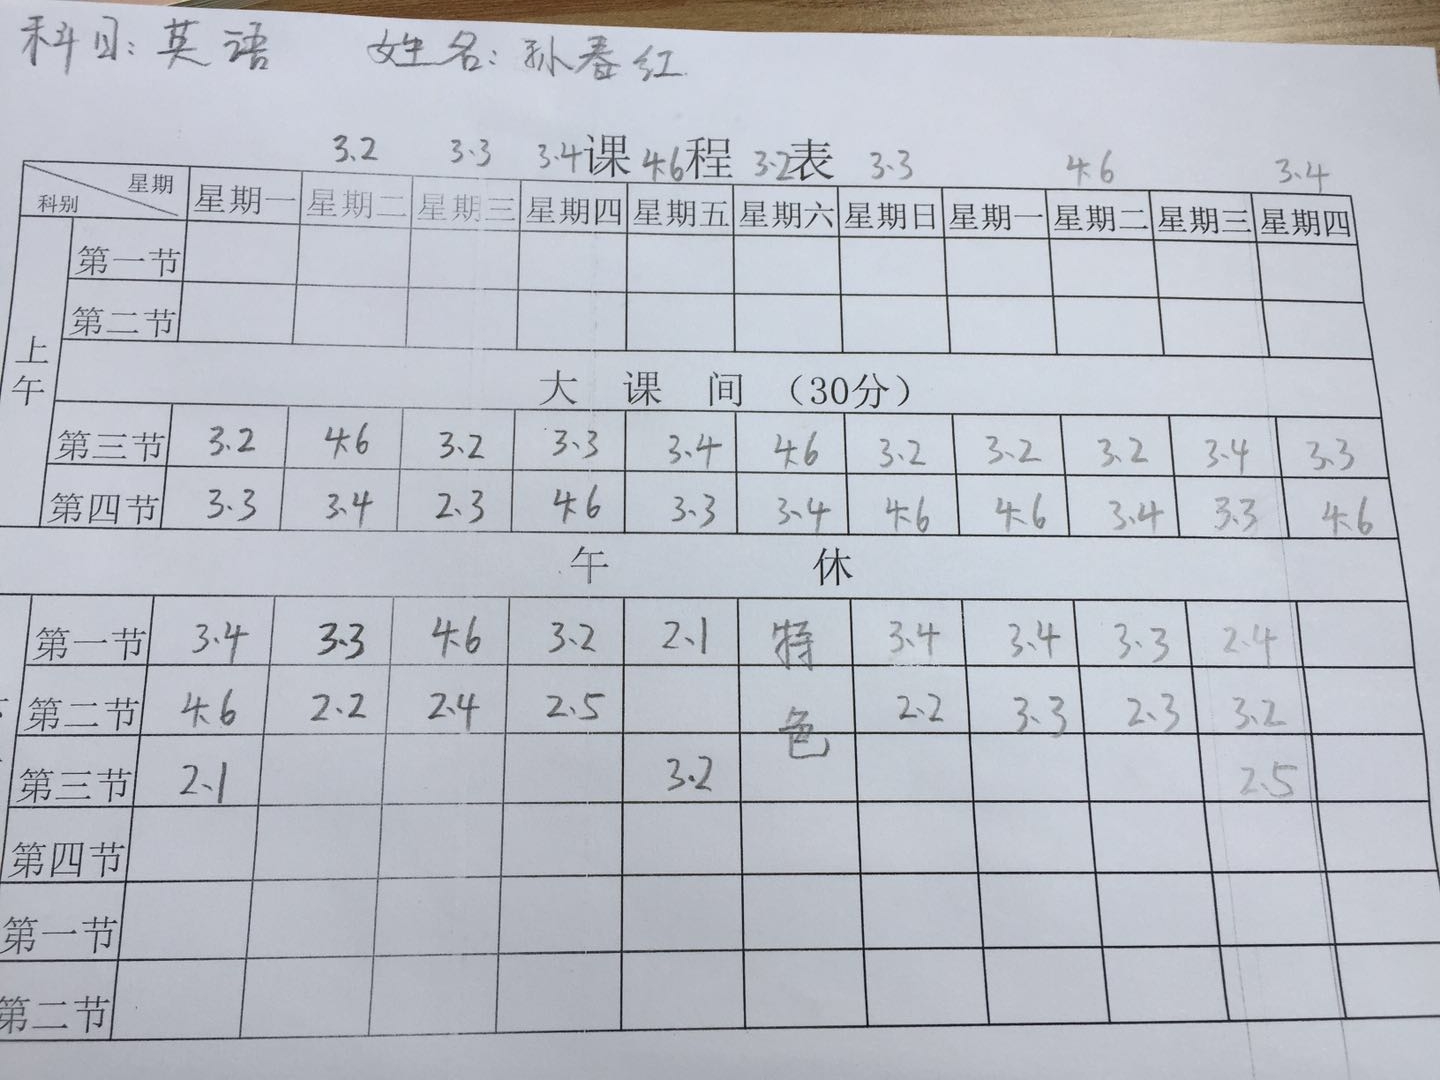 科目: 英语 姓名: 孙春红
3.2 3.3 3.4 课 4.6 程 3.2 表 3.3 4.6 3.4
星期 科别 星期一 星期二 星期三 星期四 星期五 星期六 星期日 星期一 星期二 星期三 星期四
第一节
第二节
上午
大 课 间 （30分）
第三节 3.2 4.6 3.2 3.3 3.4 4.6 3.2 3.2 3.2 3.4 3.3
第四节 3.3 3.4 2.3 4.6 3.3 3.4 4.6 4.6 3.4 3.3 4.6
午 休
第一节 3.4 3.3 4.6 3.2 2.1 特 3.4 3.4 3.3 2.4
第二节 4.6 2.2 2.4 2.5 色 2.2 3.3 2.3 3.2
第三节 2.1 3.2 2.5
第四节
第一节
第二节